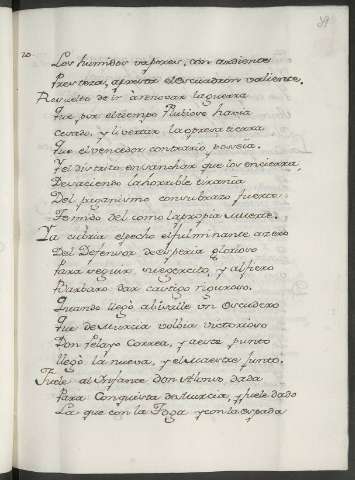 39
20.
Los humidos vapores, con ardiente
Presteza, apresta el escuadron valiente.
Resuelto de ir a renovar la guerra
Q̃ fue por el tiempo Pluvioso hacia
Cesado, y livertar la opresa tierra
Que el vencedor contrario posseia.
Y el districto ensanchar que los encierra,
Desaciendo la horrible tirania
Del paganismo con su brazo fuerte
Temido del como la propia muerte.
Ya cubria el pecho el fulminante azero
Del Defensor de esperia glorioso
Para seguir su exercito, y al fiero
Barbaro dar castigo riguroso.
Quando llegò al valle un Escudero
Q̃ fue de Murcia volvia victorioso
Don Pelayo Correa, y a este punto
llegò la nueva, y el Maestre junto.
Fuele al Infante Don Alonso dada
Para Conquista de Murcia, y fuele dado
La que con la Toga y con la espada